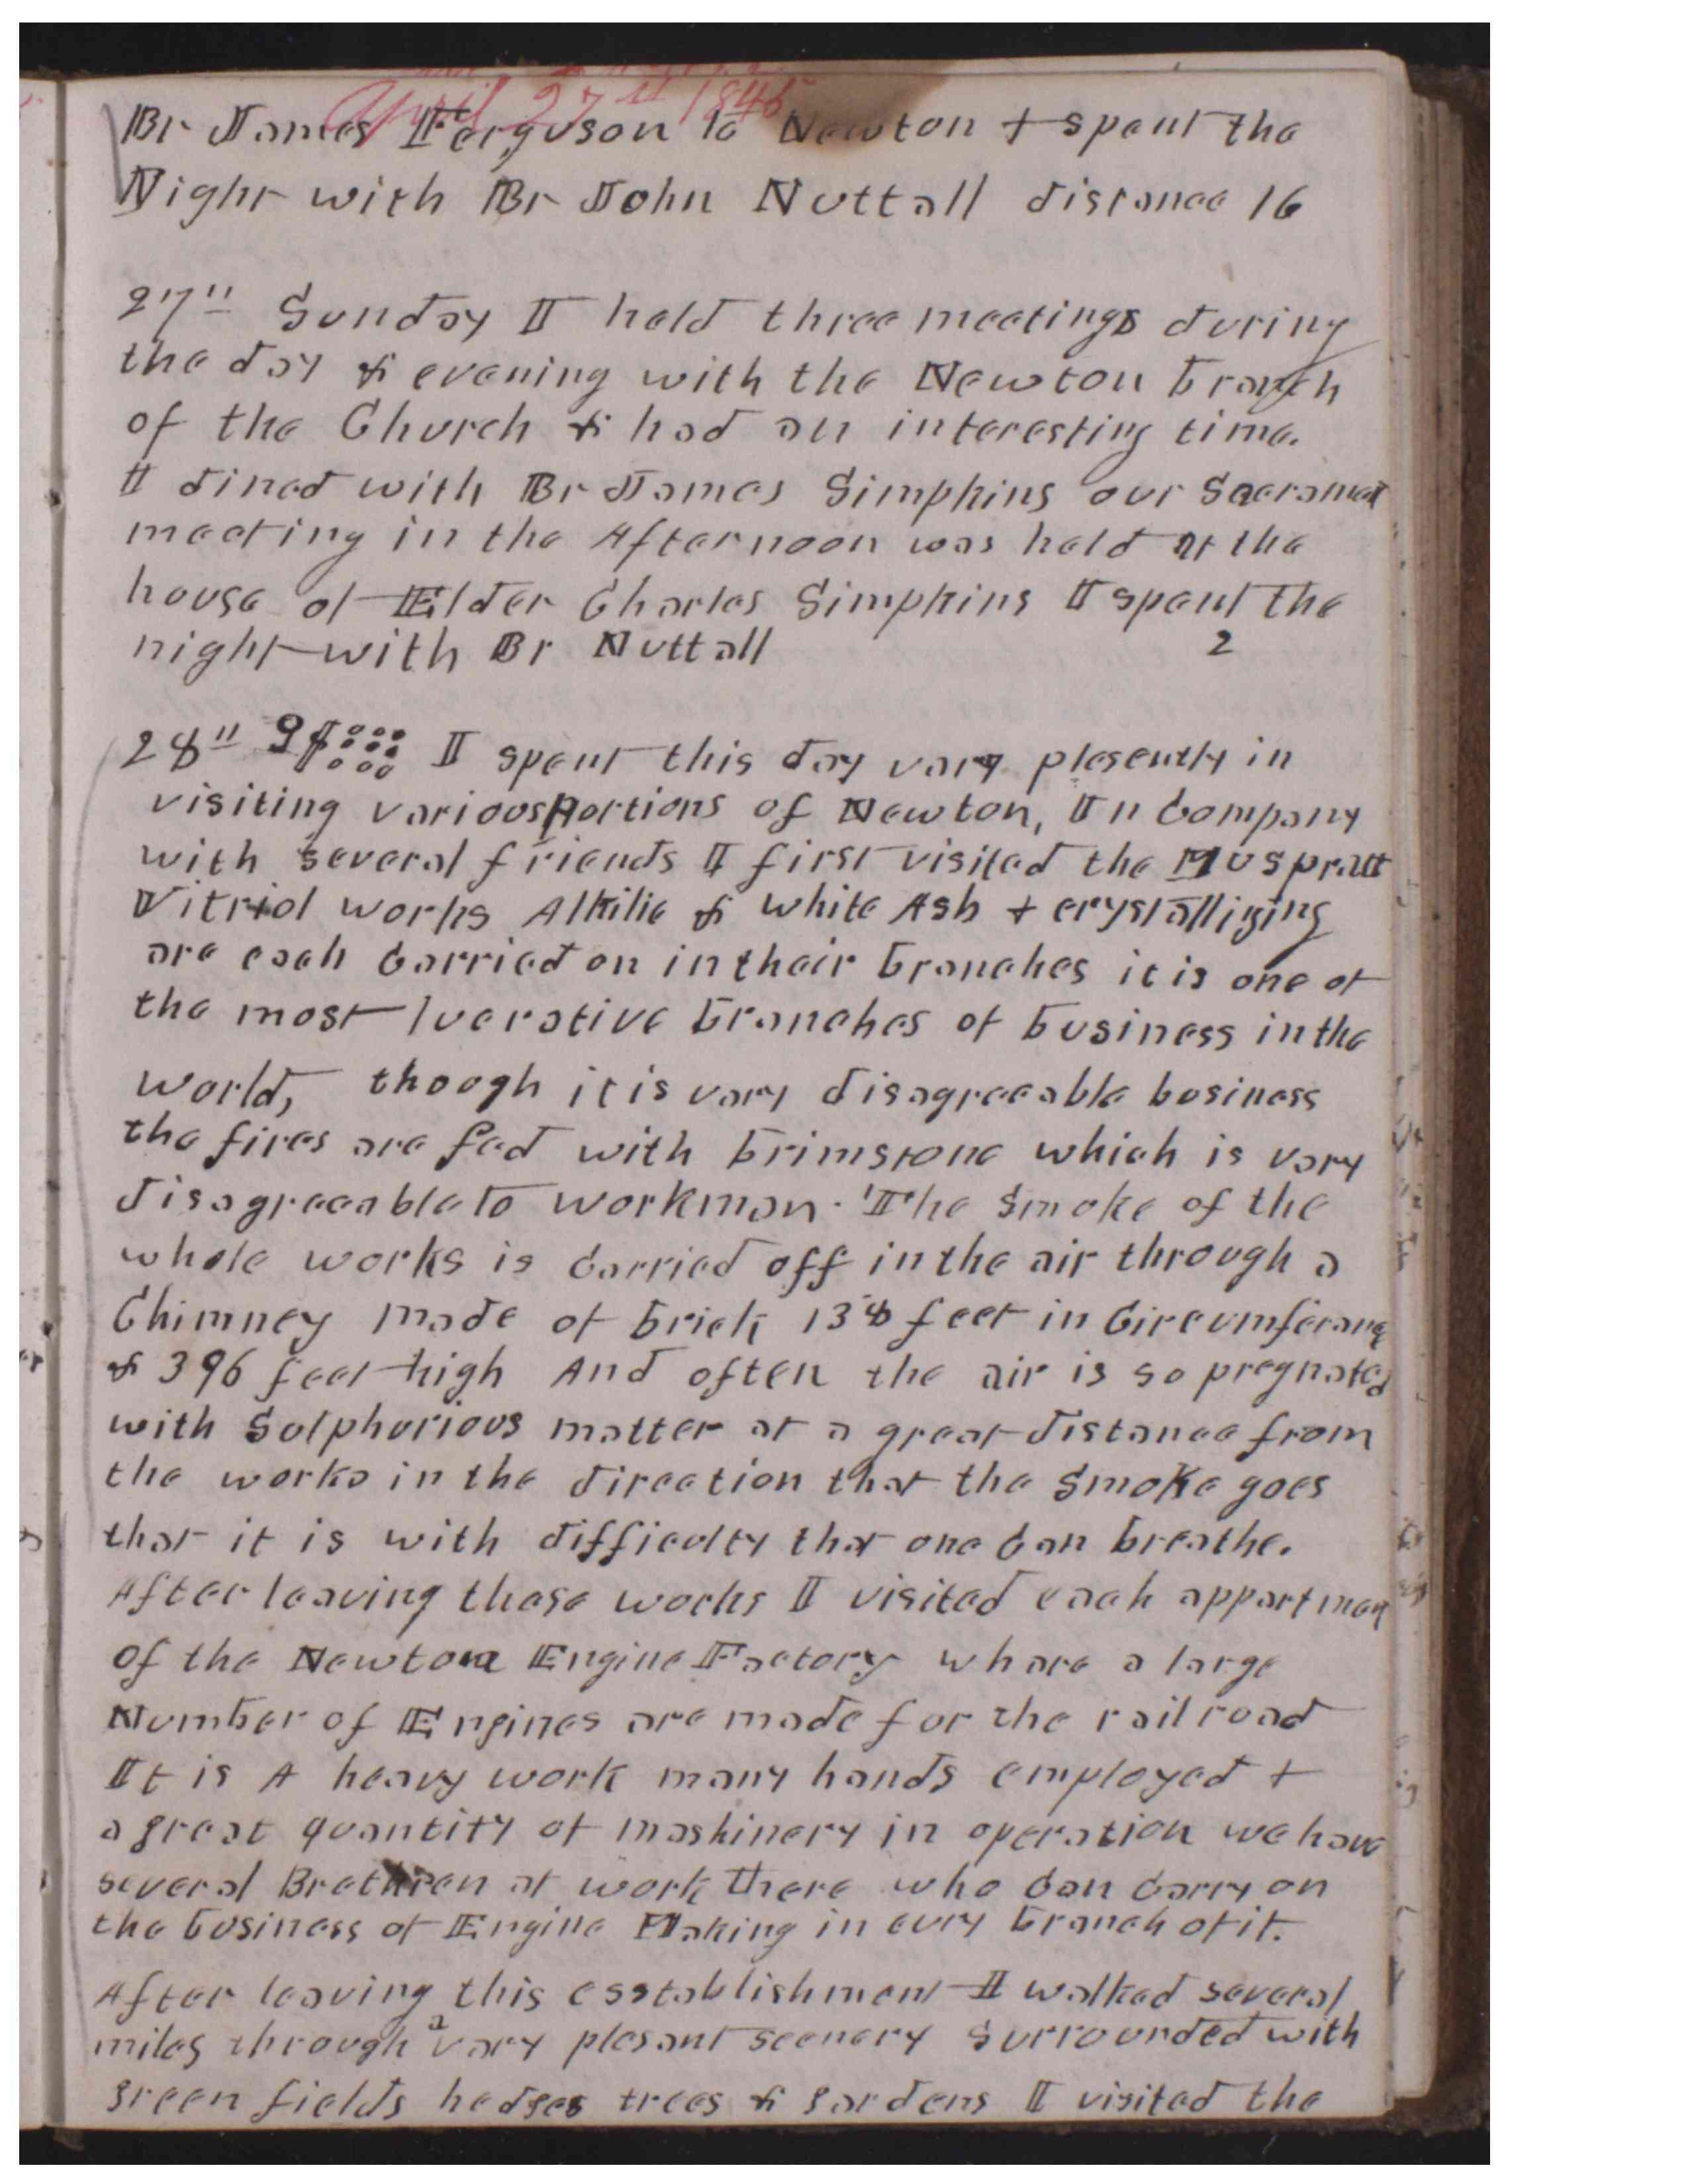 April 27th 1845
Br James Ferguson to Newton & spent the
Night with Br John Nuttall distance 16
27th Sunday I held three meetings during
the day & evening with the Newton branch
of the Church & had an interesting time.
I dined with Br James Simpkins our Sacramet
meeting in the Afternoon was held at the
house of Elder Charles Simpkins I spent the
night with Br Nuttall 2
28th I spent this day vary plesently in
visiting various Portions of Newton, In Company
with several friends I first visited the Muspratt
Vitriol works Alkilie & white Ash & crystallizing
are each Carried on in their branches it is one of
the most lucrative branches of business in the
world, though it is vary disagreeable business
the fires are fed with brimstone which is vary
disagreeable to workman. The smoke of the
whole works is Carried off in the air through a
Chimney made of brick 138 feet in Circumferance
& 396 feet high And often the air is so pregnated
with Sulphurious matter at a great distance from
the works in the direction that the Smoke goes
that it is with difficulty that one Can breathe.
After leaving these works I visited each appartmen
of the Newton Engine Factory whare a large
Number of Engines are made for the railroad
It is A heavy work many hands employed &
a great quantity of mashinery in operation we have
several Brethren at work there who Can Carry on
the business of Engine Making in evry branch of it.
After leaving this esstablishment I walked several
miles through a vary plesant scenery surrounded with
green fields hedges trees & gardens I visited the